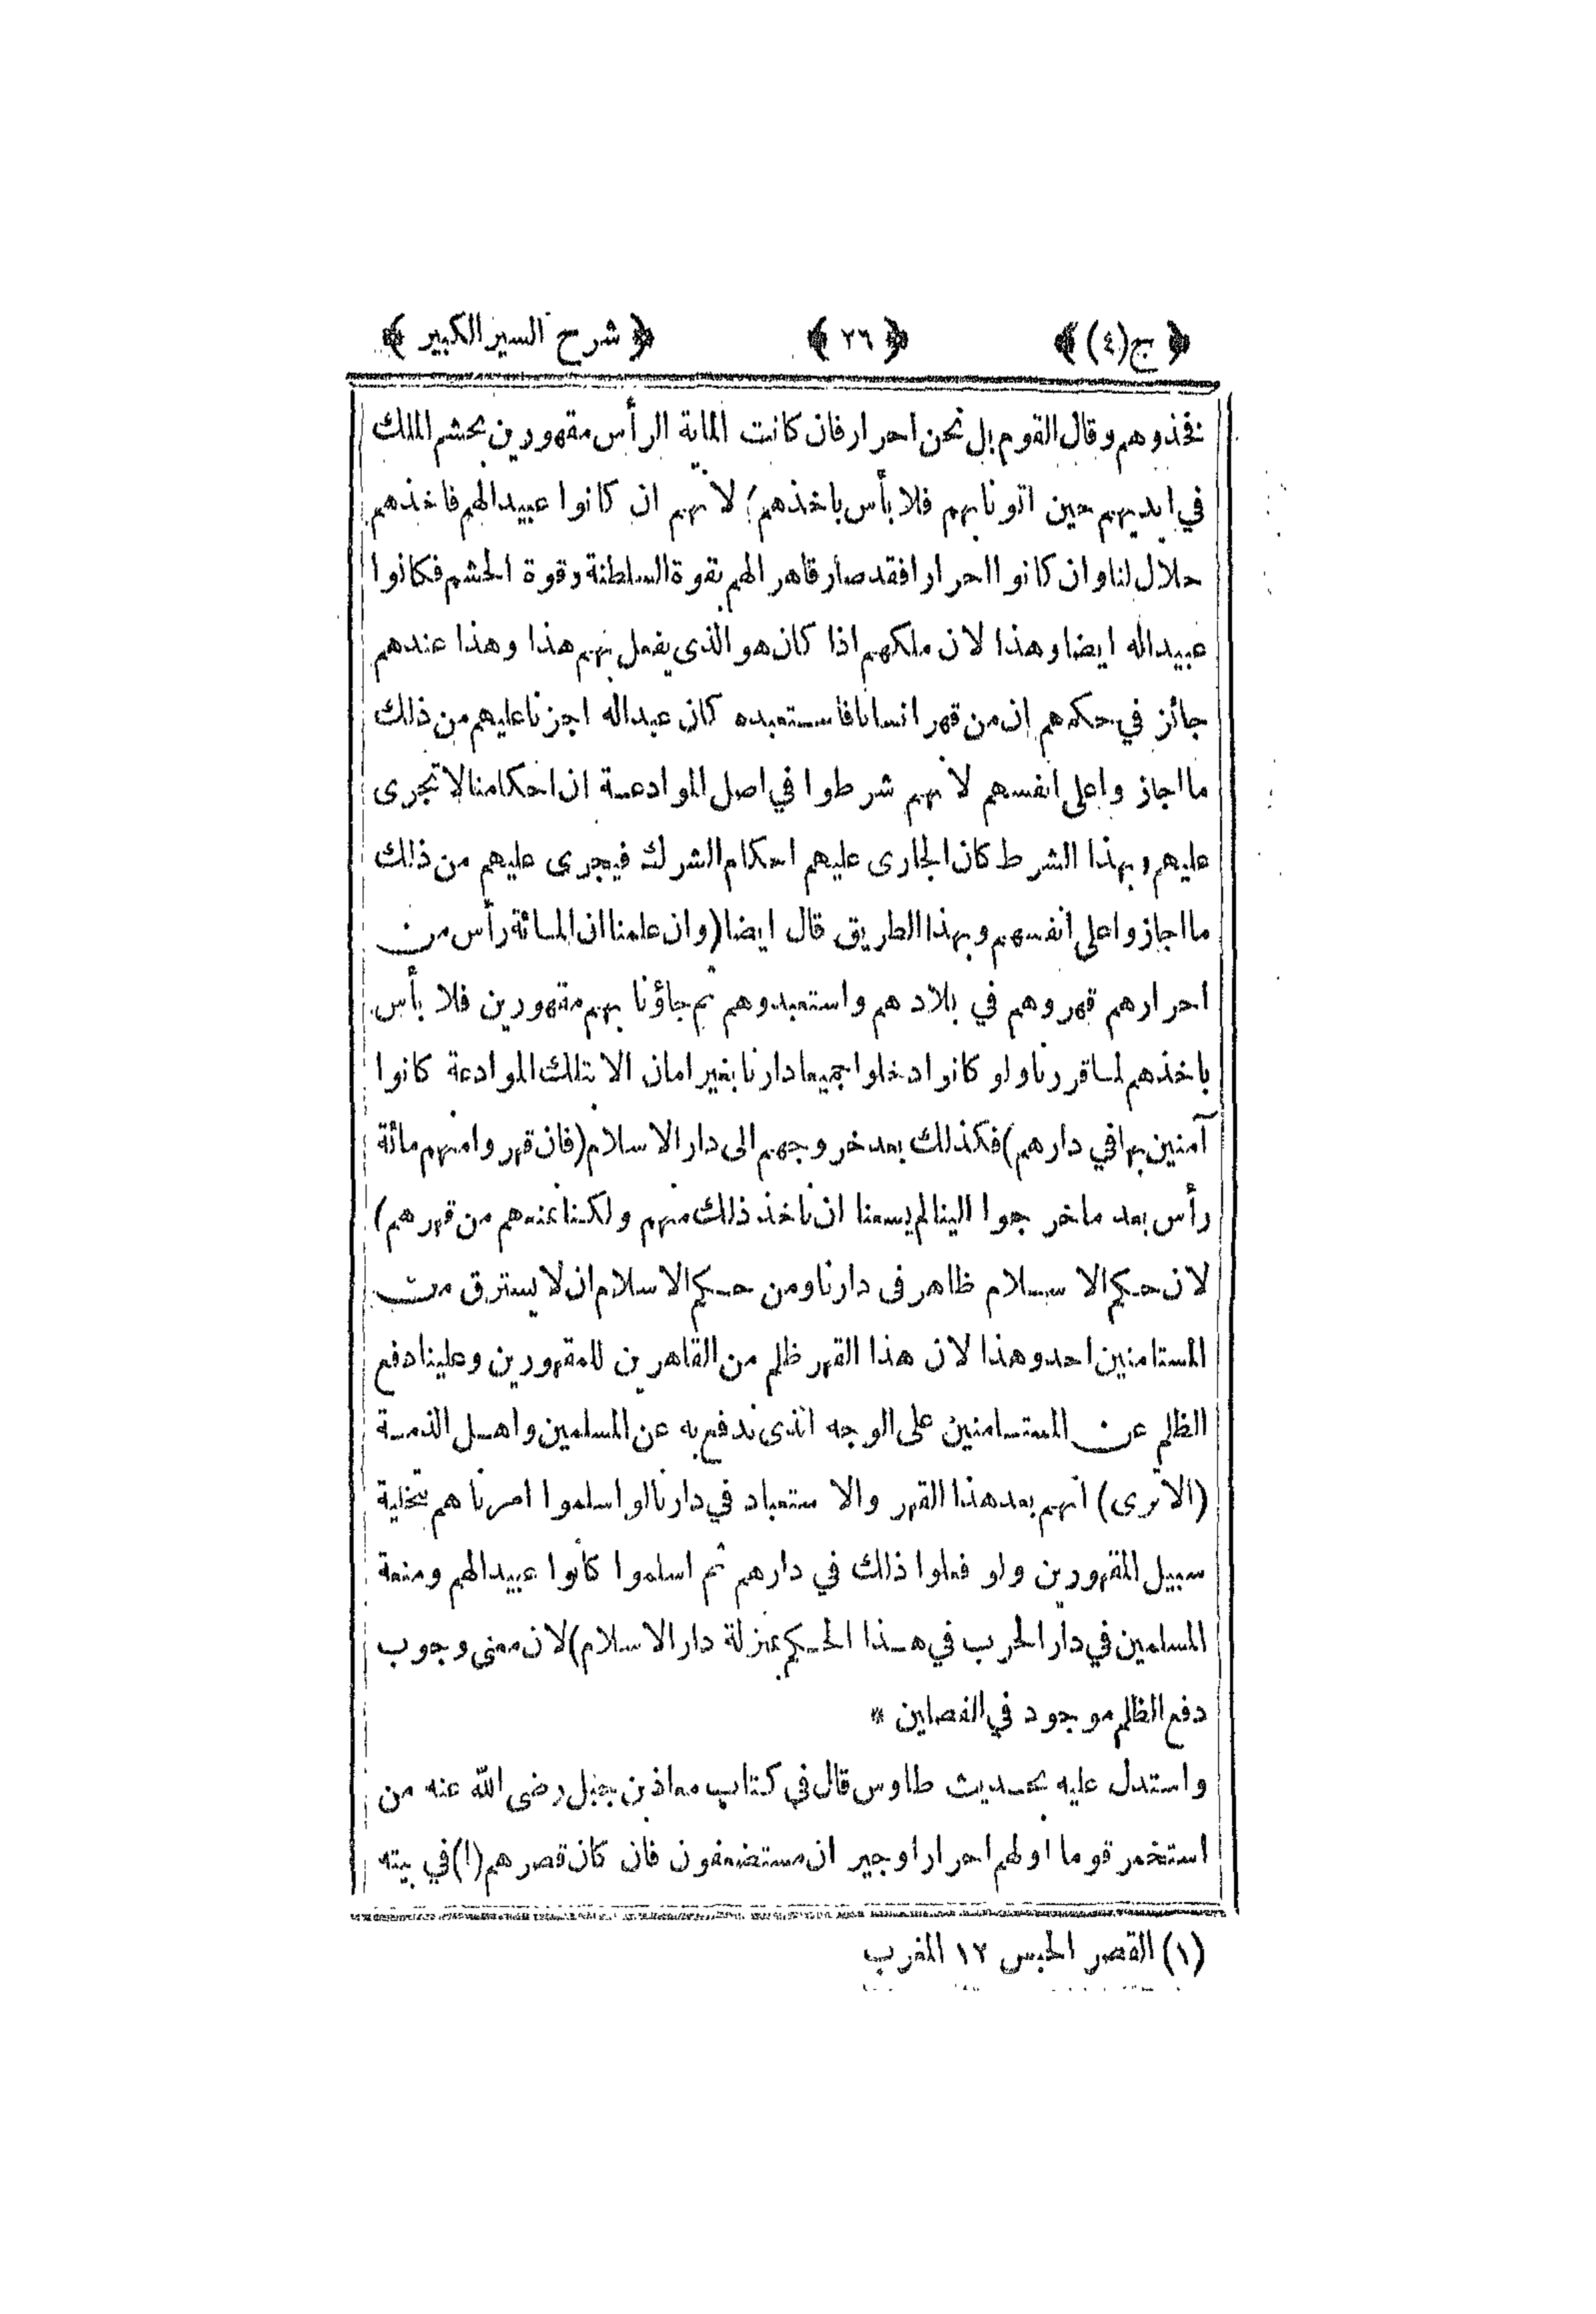 ﴿ ج(٤) ﴾ ﴿ ٢٦ ﴾ ﴿ شرح السير الكبير ﴾
فخذوهم وقال القوم بل نحن احرار فان كانت الماية الرأس مقهورين بحشم الملك
في ايديهم حين اتونا بهم فلا بأس باخذهم؛ لانهم ان كانوا عبيدا لهم فاخذهم
حلال لنا وان كانوا احرارا فقد صار قاهرا لهم بقوة السلطنة وقوة الحشم فكانوا
عبيدا له ايضا وهذا لان ملكهم اذا كان هو الذى يفعل بهم هذا وهذا عندهم
جائز في حكمهم ان من قهر انسانا فاستعبده كان عبدا له اجزنا عليهم من ذلك
ما اجازوا على انفسهم لانهم شرطوا في اصل الموادعة ان احكامنا لا تجرى
عليهم وبهذا الشرط كان الجارى عليهم احكام الشرك فيجرى عليهم من ذلك
ما اجازوا على انفسهم وبهذا الطريق قال ايضا (وان علمنا ان المائة رأس من
احرارهم قهروهم في بلادهم واستعبدوهم ثم جاؤنا بهم مقهورين فلا بأس
باخذهم لما قررنا ولو كانوا دخلوا جميعا دارنا بغير امان الا بتلك الموادعة كانوا
آمنين بها في دارهم) فكذلك بعد خروجهم الى دار الاسلام (فان قهروا منهم مائة
رأس بعد ما خرجوا الينا لم يسعنا ان نأخذ ذلك منهم ولكنا نمنعهم من قهرهم)
لان حكم الاسلام ظاهر فى دارنا ومن حكم الاسلام ان لا يسترق من
المستامنين احد وهذا لان هذا القهر ظلم من القاهرين للمقهورين وعلينا دفع
الظلم عن المستامنين على الوجه الذى ندفع به عن المسلمين واهل الذمة
(الا ترى) انهم بعد هذا القهر والاستعباد في دارنا لو اسلموا امرناهم بتخلية
سبيل المقهورين ولو فعلوا ذلك في دارهم ثم اسلموا كانوا عبيدا لهم ومنعة
المسلمين في دار الحرب في هذا الحكم بمنزلة دار الاسلام) لان معنى وجوب
دفع الظلم موجود في الفصلين *
واستدل عليه بحديث طاوس قال في كتاب معاذ بن جبل رضى الله عنه من
استخمر قوما اولهم احرار او جيران مستضعفون فان كان قصرهم (١) في بيته
(١) القصر الحبس ١٢ المغرب